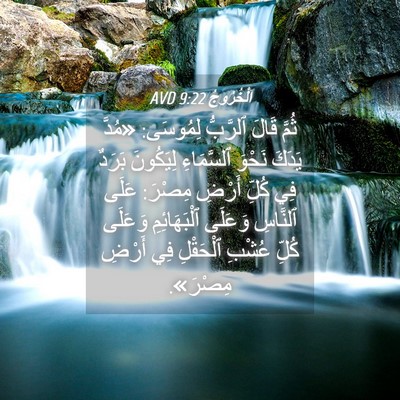 اَلْخُرُوجُ 9:22 AVD
ثُمَّ قَالَ ٱلرَّبُّ لِمُوسَى: «مُدَّ
يَدَكَ نَحْوَ ٱلسَّمَاءِ لِيَكُونَ بَرَدٌ
فِي كُلِّ أَرْضِ مِصْرَ: عَلَى
ٱلنَّاسِ وَعَلَى ٱلْبَهَائِمِ وَعَلَى
كُلِّ عُشْبِ ٱلْحَقْلِ فِي أَرْضِ
مِصْرَ».